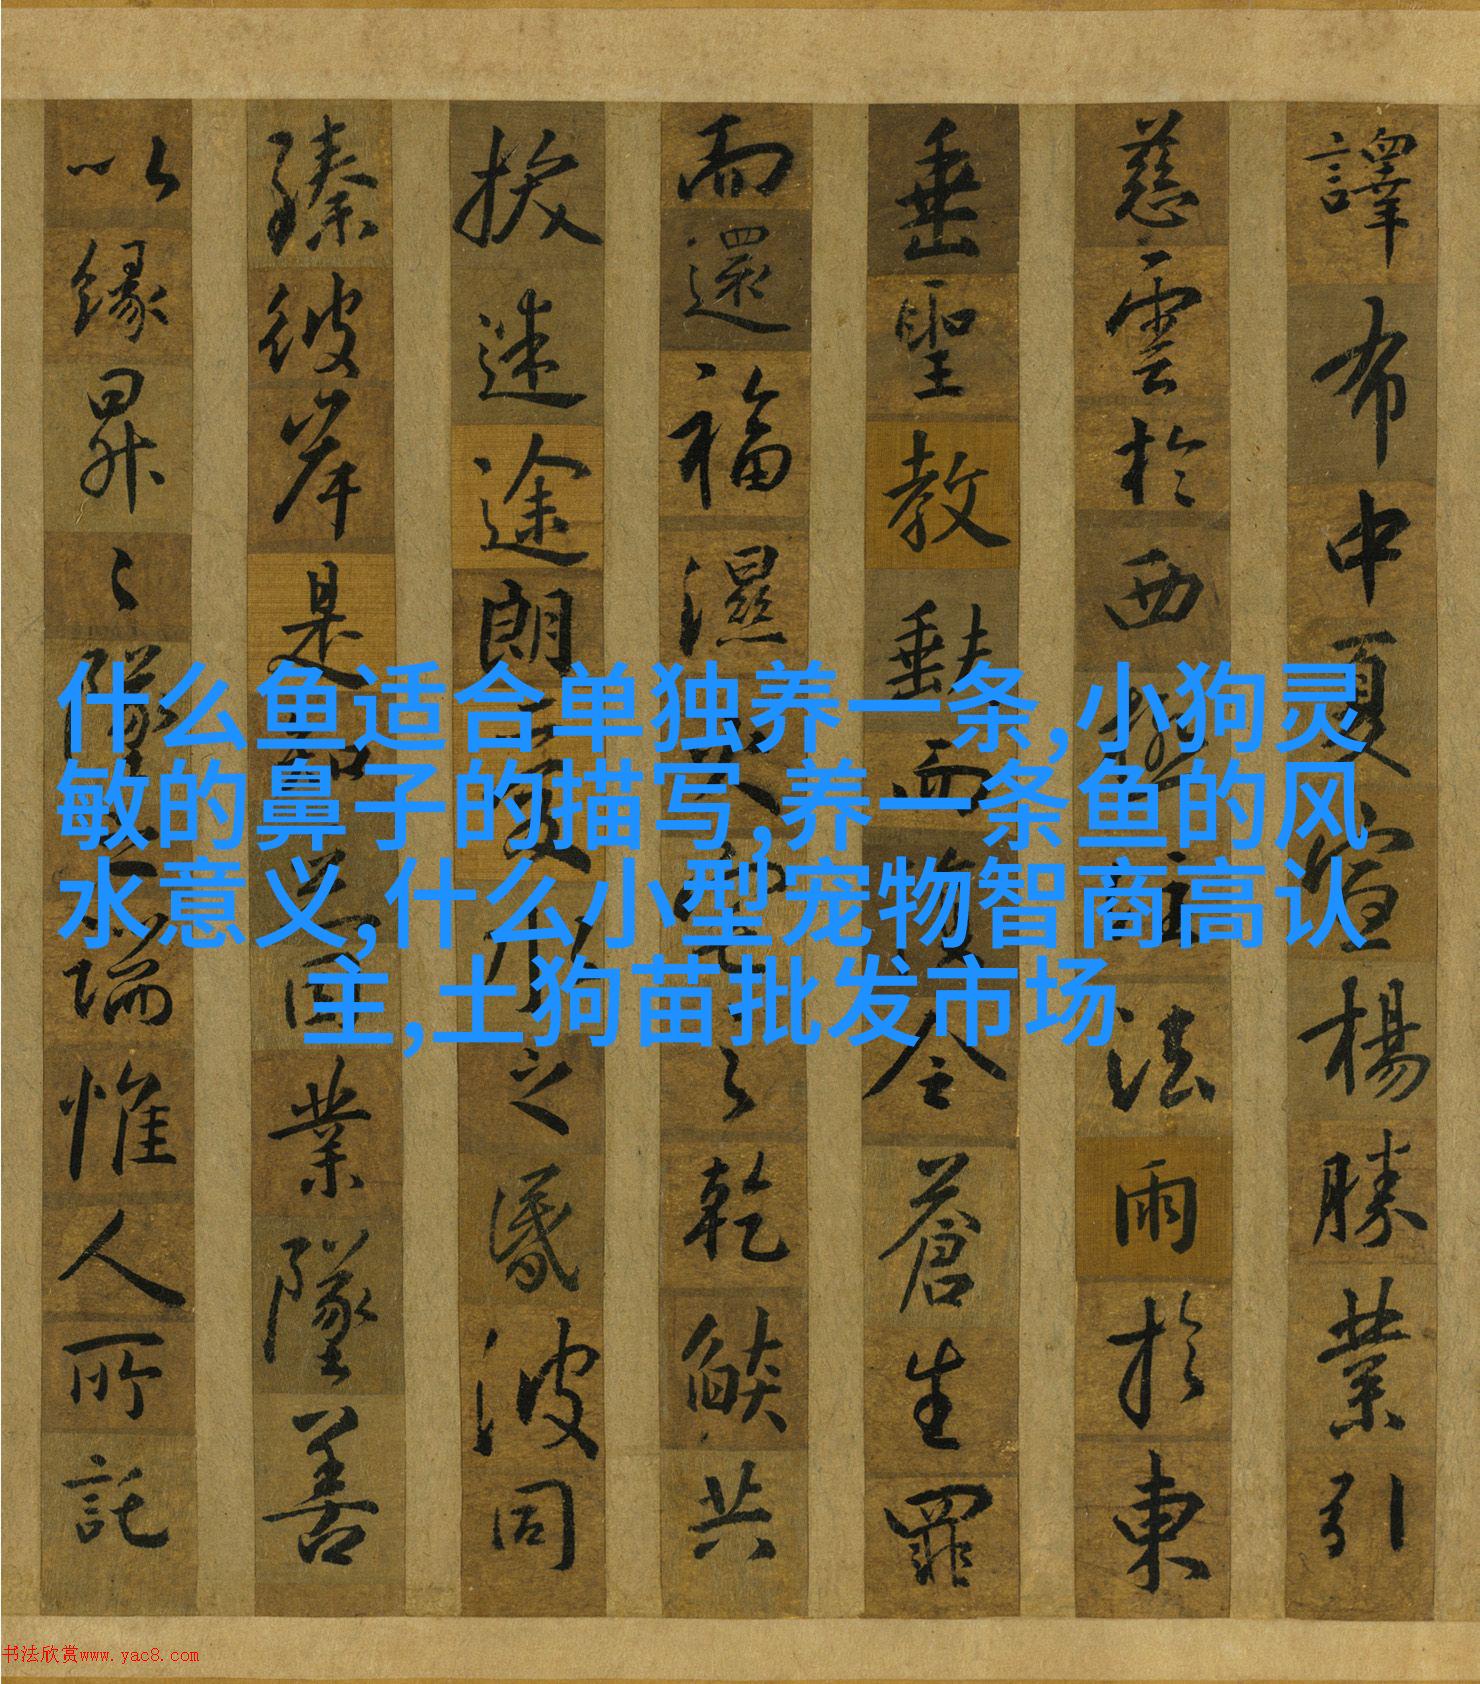 譯布中夏宣楊勝業引
慈雲於西極注法雨於東
垂聖教缺而復全蒼生罪
而還福濕火宅之乾燄共
拔迷途朗愛水之昏波同
臻彼岸是知惡因業墜善
以緣昇〻墜之端惟人所託
什么鱼适合单独养一条,小狗灵
敏的鼻子的描写,养一条鱼的风
水意义,什么小型宠物智商高认
主,土狗苗批发市场
书法欣赏www.yac8.com